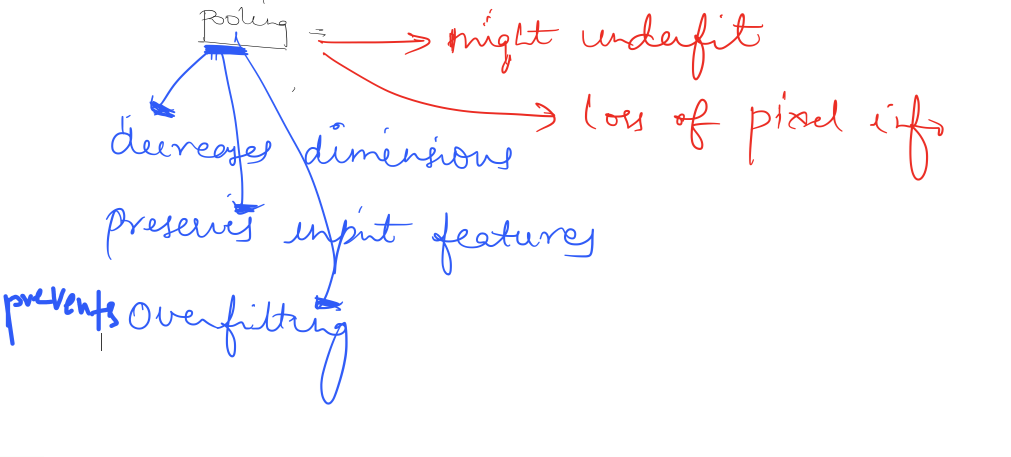 pooling =
might underfit
loss of pixel info
decreases dimensions
preserves input features
prevents Overfitting